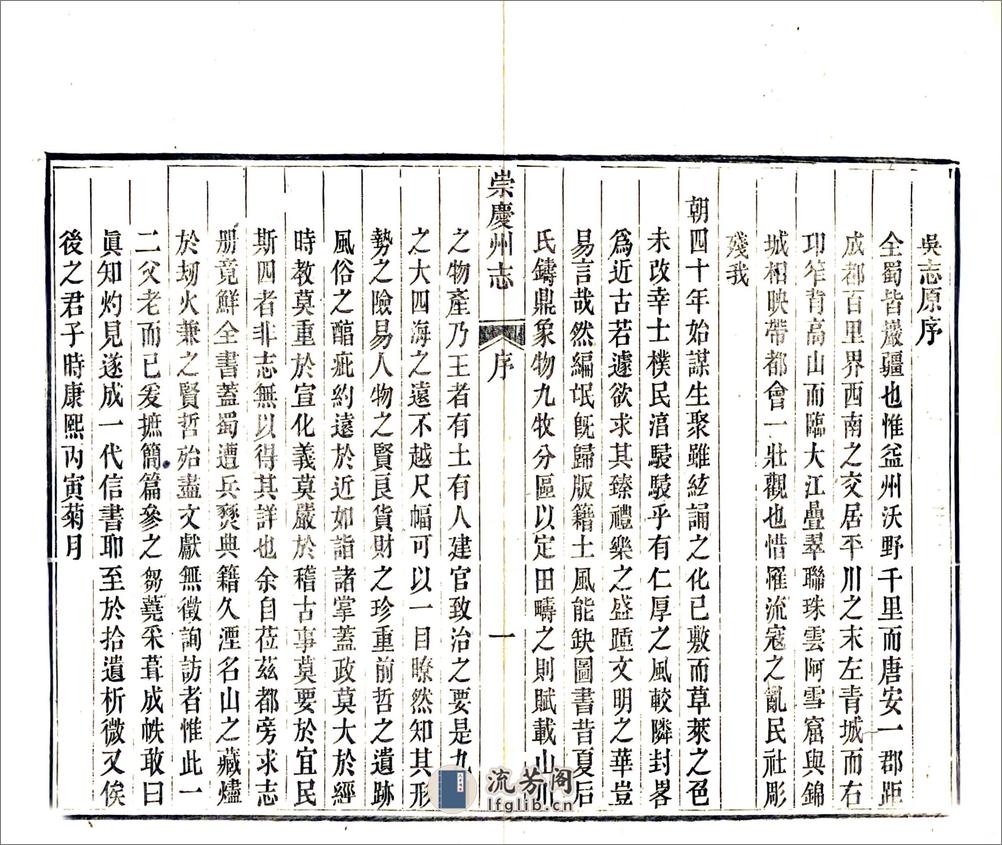 吳志原序
全蜀皆巖疆也惟益州沃野千里而唐安一郡距
成都百里界西南之交居平川之末左青城而右
卭笮背高山而臨大江疊翠聯珠雲阿雪窟與錦
城相映帶都會一壯觀也惜罹流寇之亂民社彫
殘我
朝四十年始謀生聚雖絃誦之化已敷而草萊之色
未改幸士樸民淯駸駸乎有仁厚之風較隣封畧
爲近古若遽欲求其臻禮樂之盛踵文明之華豈
易言哉然編氓旣歸版籍土風能缺圖書昔夏后
氏鑄鼎象物九牧分區以定田疇之則賦載山川
崇慶州志
序
一
之物產乃王者有土有人建官致治之要是九州
之大四海之遠不越尺幅可以一目瞭然知其形
勢之險易人物之賢良貨財之珍重前哲之遺跡
風俗之醕疵約遠於近如詣諸掌蓋政莫大於經
時教莫重於宣化義莫嚴於稽古事莫要於宜民
斯四者非志無以得其詳也余自莅茲都旁求志
册竟鮮全書蓋蜀遭兵燹典籍久湮名山之藏燼
於刼火兼之賢哲殆盡文獻無徵詢訪者惟此一
二父老而已爰摭簡篇參之芻蕘采葺成帙敢曰
眞知灼見遂成一代信書耶至於拾遺析微又俟
後之君子時康熙丙寅菊月
流芳阁
lfglib.cn